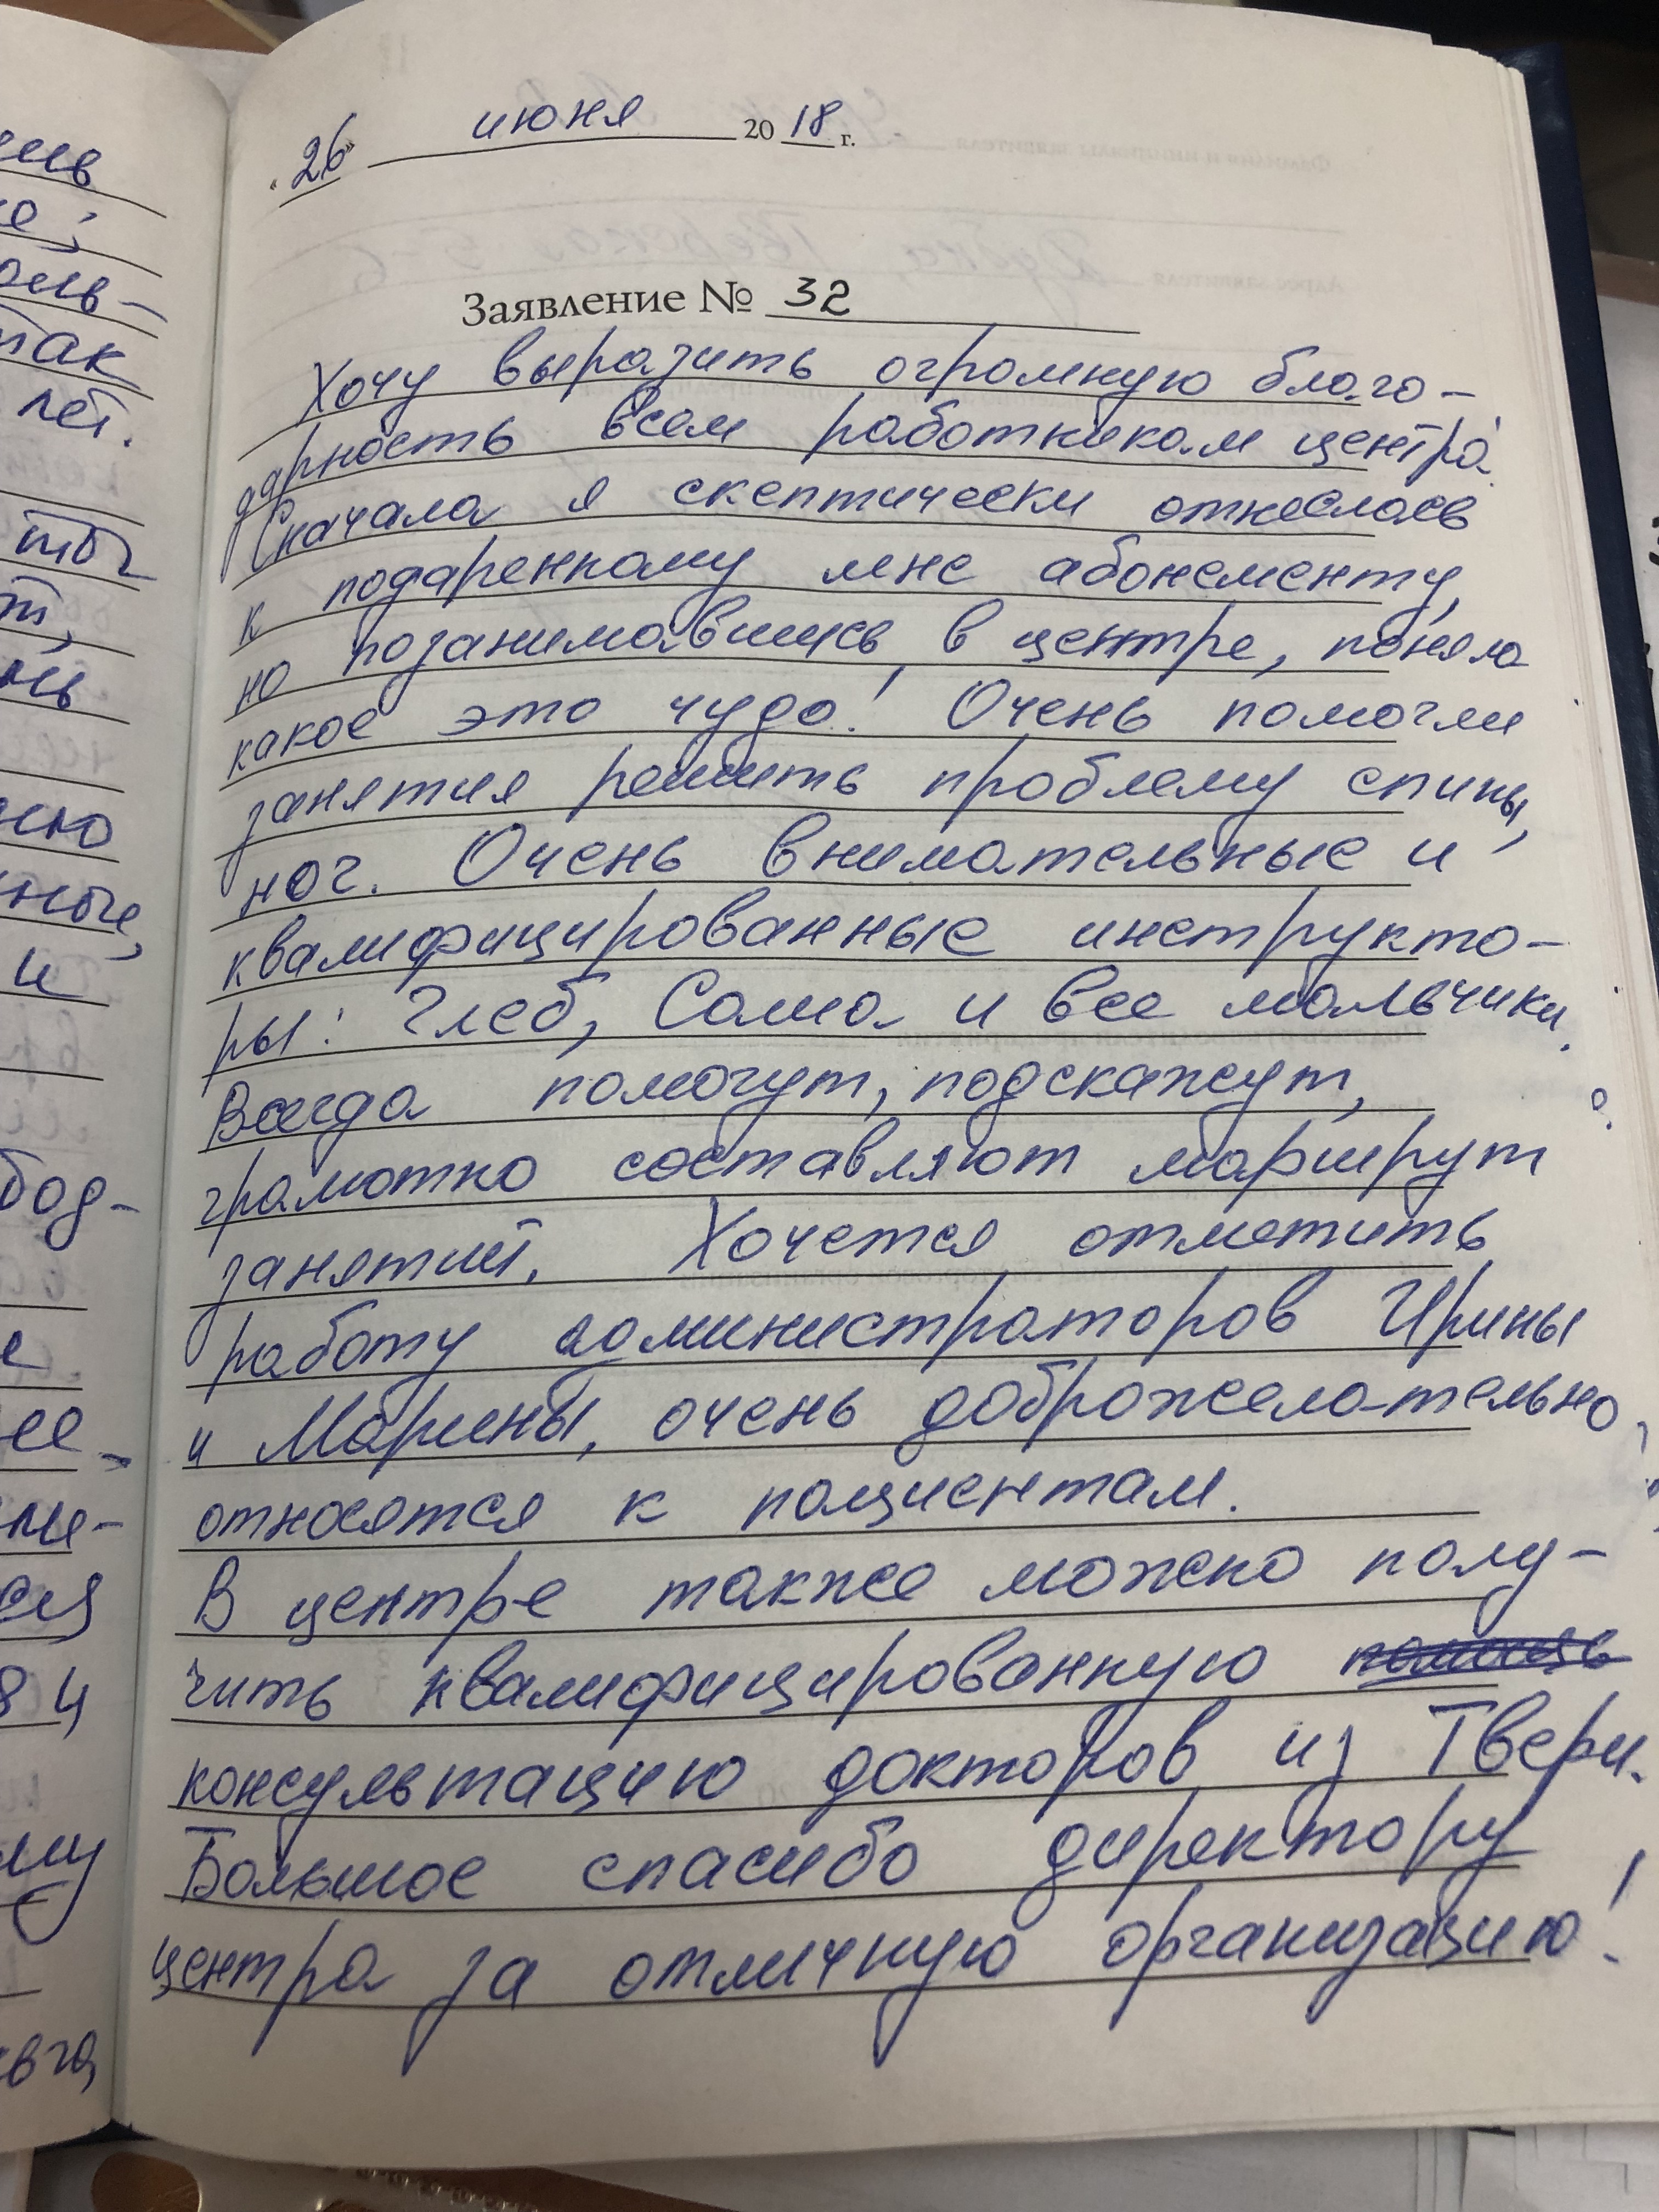 «26» июня 2018 г.
Заявление № 32
Хочу выразить огромную благо-
дарность всем работникам центра.
Сначала я скептически отнеслась
к подаренному мне абонементу,
но позанимавшись в центре, поняла
какое это чудо! Очень помогли
занятия решить проблему спины,
ног. Очень внимательные и
квалифицированные инструкто-
ры: Глеб, Саша и все мальчики.
Всегда помогут, подскажут,
грамотно составляют маршрут
занятий. Хочется отметить
работу администраторов Ирины
и Марины, очень доброжелательно
относятся к пациентам.
В центре также можно полу-
чить квалифицированную
консультацию докторов из Твери.
Большое спасибо директору
центра за отличную организацию!
так
лет.
и
бод-
84